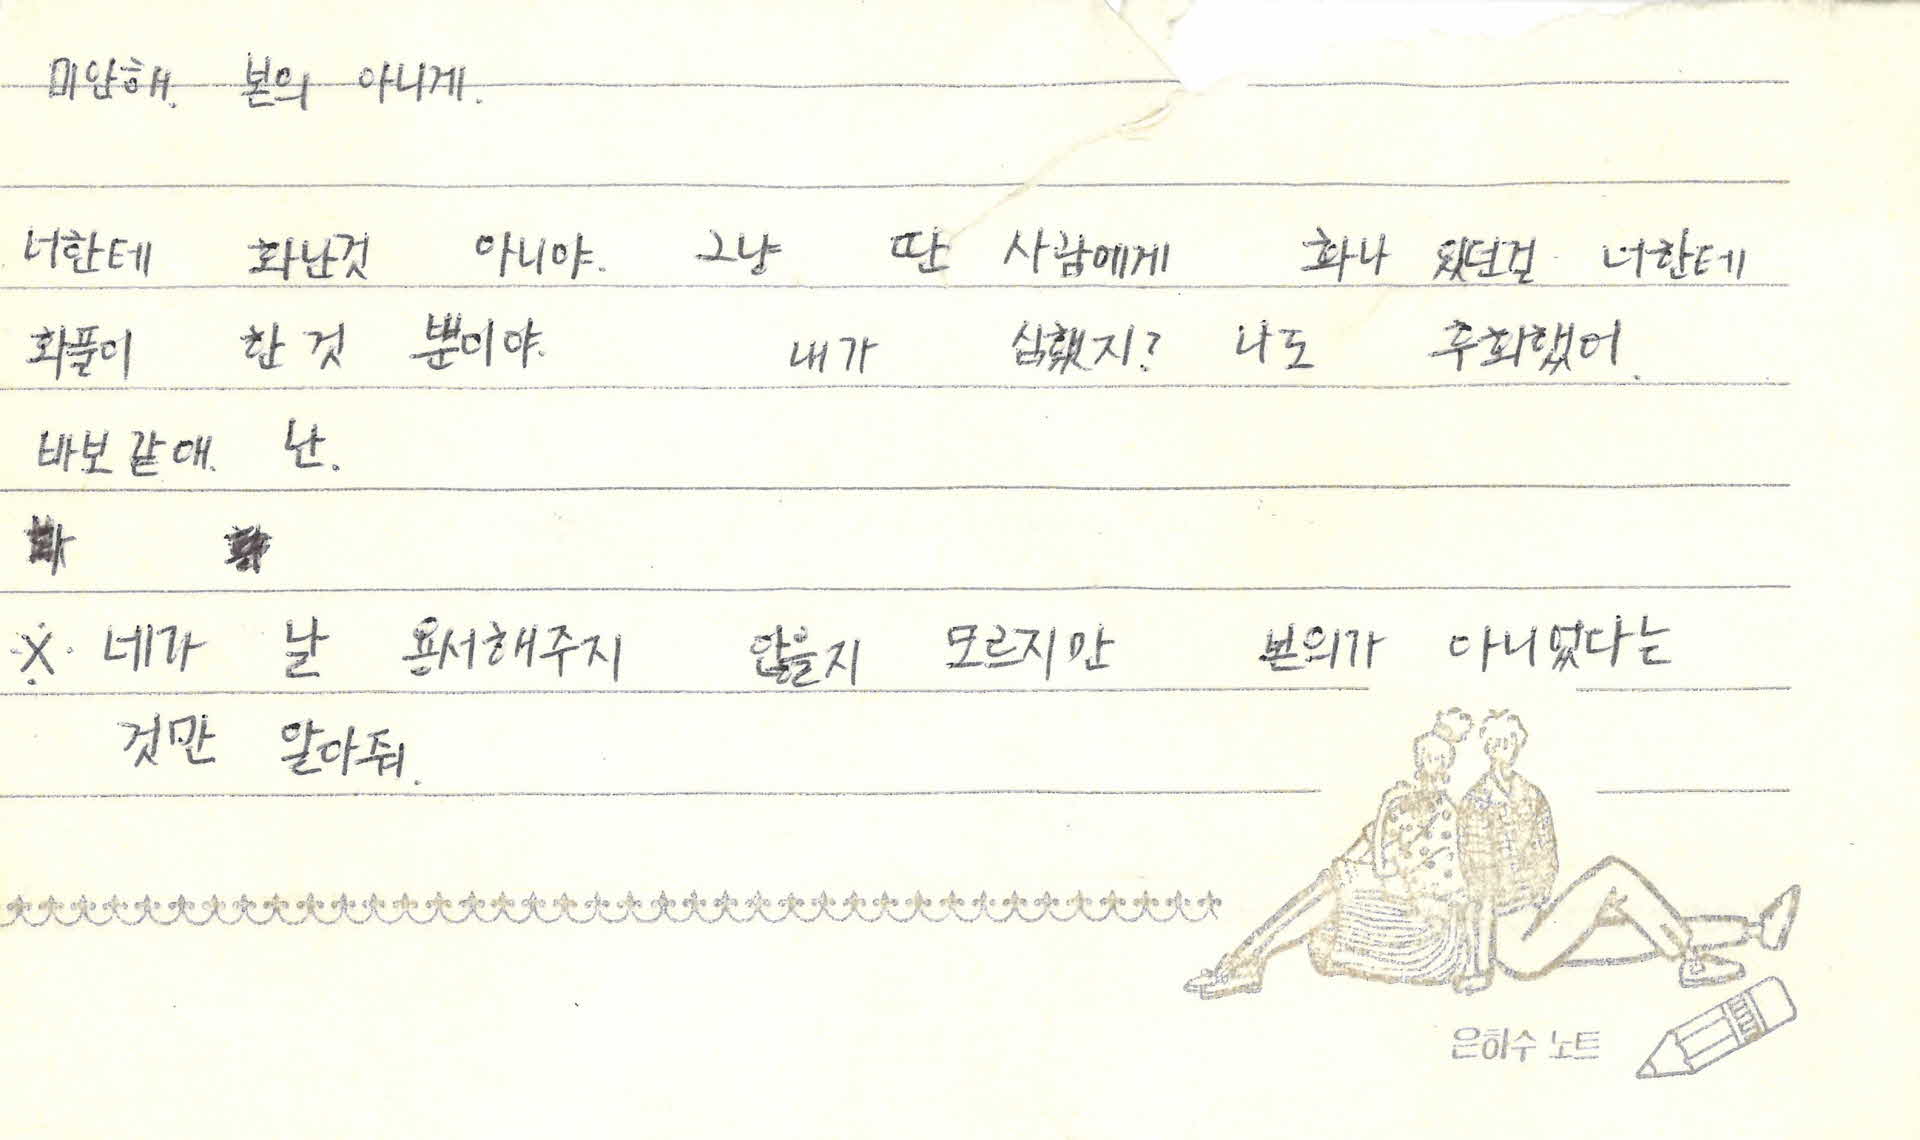 미안해. 본의 아니게.
너한테 화난것 아니야. 그냥 딴 사람에게 화나 있던걸 너한테
화풀이 한 것 뿐이야. 내가 심했지? 나도 후회했어.
바보 같애. 난.
※ 네가 날 용서해주지 않을지 모르지만 본의가 아니었다는
것만 알아줘.
은하수 노트